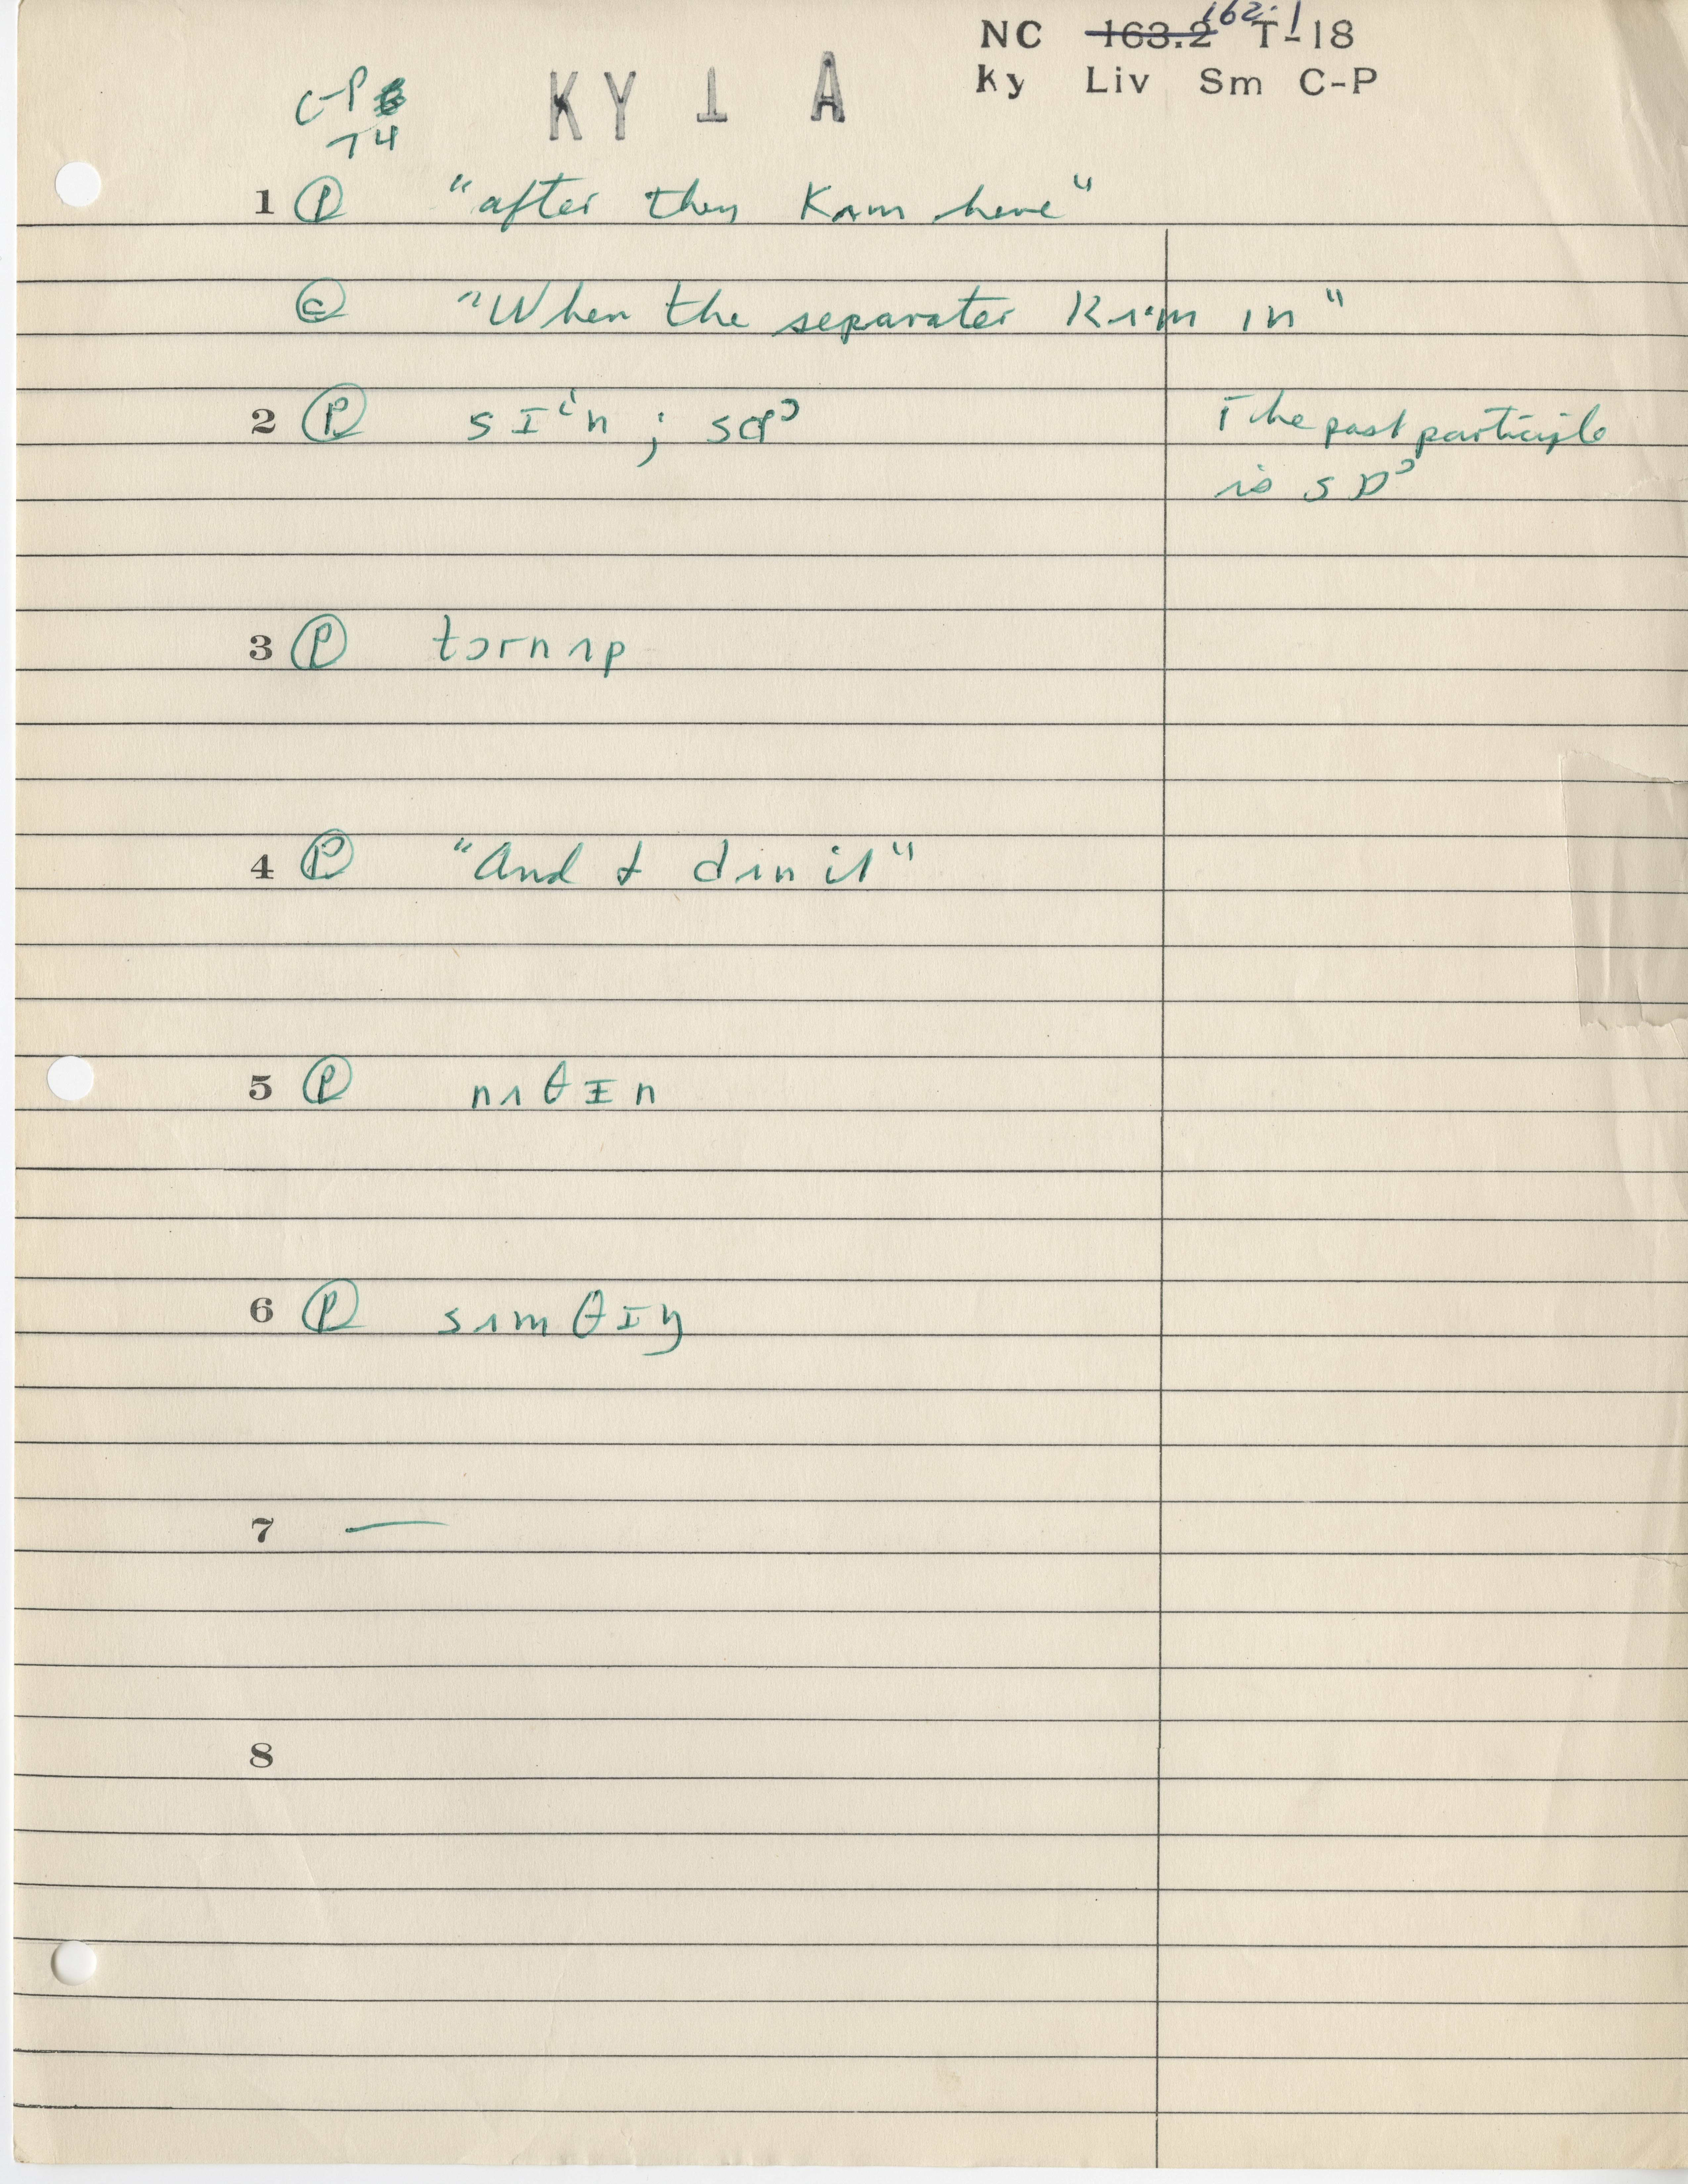 NC 163.2 162.1 T-18
Ky Liv Sm C-P
C-P
74
KY 1 A
1 Ⓟ "after they kʌm here"
Ⓒ "When the separater kʌ·m in"
2 Ⓟ sɪ˓n ; sɑ˒ The past participle
is sɒ˒
3 Ⓟ tɔrnʌp
4 Ⓟ "And I dʌn it"
5 Ⓟ nʌθɪn
6 Ⓟ sʌmθɪŋ
7 —
8